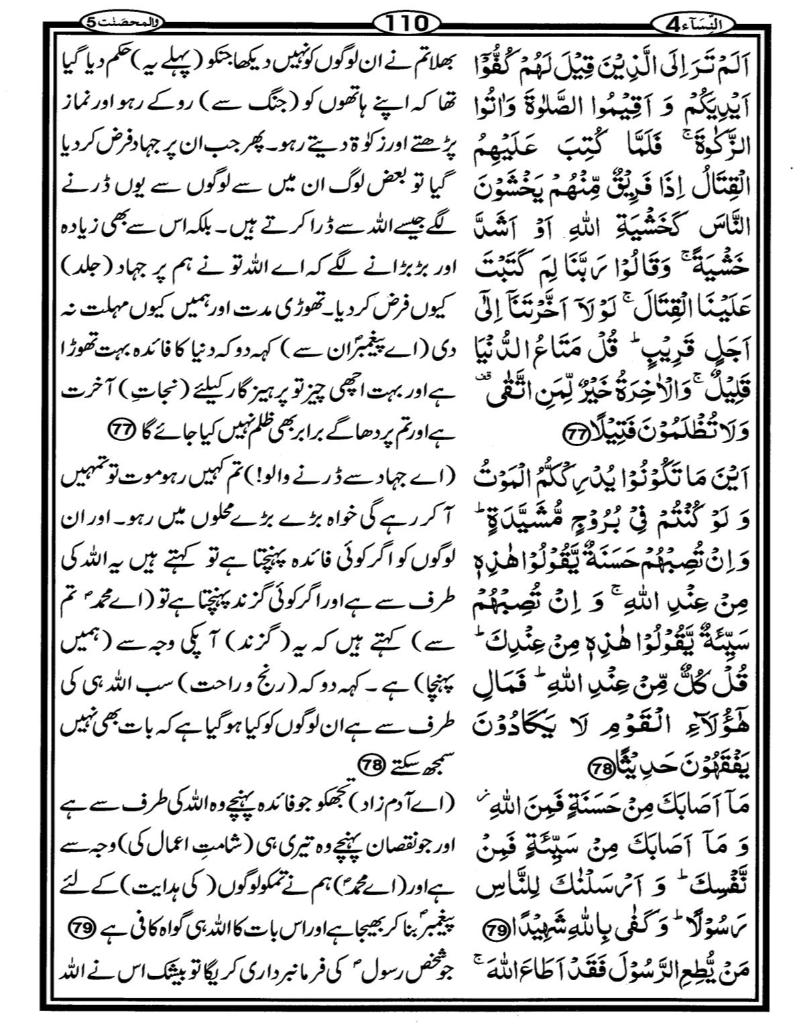 النِّسَآء 4
110
وَالمحصَنٰت 5
اَلَمۡ تَرَ اِلَى الَّذِيۡنَ قِيۡلَ لَهُمۡ كُفُّوۡۤا
اَيۡدِيَكُمۡ وَ اَقِيۡمُوا الصَّلٰوةَ وَاٰتُوا
الزَّكٰوةَ ۚ فَلَمَّا كُتِبَ عَلَيۡهِمُ
الۡقِتَالُ اِذَا فَرِيۡقٌ مِّنۡهُمۡ يَخۡشَوۡنَ
النَّاسَ كَخَشۡيَةِ اللّٰهِ اَوۡ اَشَدَّ
خَشۡيَةً ۚ وَقَالُوۡا رَبَّنَا لِمَ كَتَبۡتَ
عَلَيۡنَا الۡقِتَالَ ۚ لَوۡلَاۤ اَخَّرۡتَنَاۤ اِلٰٓى
اَجَلٍ قَرِيۡبٍ ؕ قُلۡ مَتَاعُ الدُّنۡيَا
قَلِيۡلٌ ۚ وَالۡاٰخِرَةُ خَيۡرٌ لِّمَنِ اتَّقٰى قف
وَلَا تُظۡلَمُوۡنَ فَتِيۡلًا 77
اَيۡنَ مَا تَكُوۡنُوۡا يُدۡرِكْكُّمُ الۡمَوۡتُ
وَ لَوۡ كُنۡتُمۡ فِىۡ بُرُوۡجٍ مُّشَيَّدَةٍ ؕ
وَاِنۡ تُصِبۡهُمۡ حَسَنَةٌ يَّقُوۡلُوۡا هٰذِهٖ
مِنۡ عِنۡدِ اللّٰهِ ۚ وَ اِنۡ تُصِبۡهُمۡ
سَيِّئَةٌ يَّقُوۡلُوۡا هٰذِهٖ مِنۡ عِنۡدِكَ ؕ
قُلۡ كُلٌّ مِّنۡ عِنۡدِ اللّٰهِ ؕ فَمَالِ
هٰٓؤُلَآءِ الۡقَوۡمِ لَا يَكَادُوۡنَ
يَفۡقَهُوۡنَ حَدِيۡثًا 78
مَاۤ اَصَابَكَ مِنۡ حَسَنَةٍ فَمِنَ اللّٰهِ ز
وَ مَاۤ اَصَابَكَ مِنۡ سَيِّئَةٍ فَمِنۡ
نَّفۡسِكَ ؕ وَ اَرۡسَلۡنٰكَ لِلنَّاسِ
رَسُوۡلًا ؕ وَكَفٰى بِاللّٰهِ شَهِيۡدًا 79
مَنۡ يُّطِعِ الرَّسُوۡلَ فَقَدۡ اَطَاعَ اللّٰهَ ۚ
بھلا تم نے ان لوگوں کو نہیں دیکھا جنکو (پہلے یہ) حکم دیا گیا
تھا کہ اپنے ہاتھوں کو (جنگ سے) روکے رہو اور نماز
پڑھتے اور زکوٰۃ دیتے رہو۔ پھر جب ان پر جہاد فرض کر دیا
گیا تو بعض لوگ ان میں سے لوگوں سے یوں ڈرنے
لگے جیسے اللہ سے ڈرا کرتے ہیں۔ بلکہ اس سے بھی زیادہ
اور بڑبڑانے لگے کہ اے اللہ تو نے ہم پر جہاد (جلد)
کیوں فرض کر دیا۔ تھوڑی مدت اور ہمیں کیوں مہلت نہ
دی (اے پیغمبرؐ ان سے) کہہ دو کہ دنیا کا فائدہ بہت تھوڑا
ہے اور بہت اچھی چیز تو پرہیز گار کیلئے (نجاتِ) آخرت
ہے اور تم پر دھاگے برابر بھی ظلم نہیں کیا جائے گا 77
(اے جہاد سے ڈرنے والو!) تم کہیں رہو موت تو تمہیں
آ کر رہے گی خواہ بڑے بڑے محلوں میں رہو۔ اور ان
لوگوں کو اگر کوئی فائدہ پہنچتا ہے تو کہتے ہیں یہ اللہ کی
طرف سے ہے اور اگر کوئی گزند پہنچتا ہے تو (اے محمدؐ تم
سے) کہتے ہیں کہ یہ (گزند) آپکی وجہ سے (ہمیں
پہنچا) ہے۔ کہہ دو کہ (رنج و راحت) سب اللہ ہی کی
طرف سے ہے ان لوگوں کو کیا ہو گیا ہے کہ بات بھی نہیں
سمجھ سکتے 78
(اے آدم زاد) تجھکو جو فائدہ پہنچے وہ اللہ کی طرف سے ہے
اور جو نقصان پہنچے وہ تیری ہی (شامتِ اعمال کی) وجہ سے
ہے اور (اے محمدؐ) ہم نے تمکو لوگوں (کی ہدایت) کے لئے
پیغمبرؐ بنا کر بھیجا ہے اور اس بات کا اللہ ہی گواہ کافی ہے 79
جو شخص رسولؐ کی فرمانبرداری کریگا تو بیشک اس نے اللہ